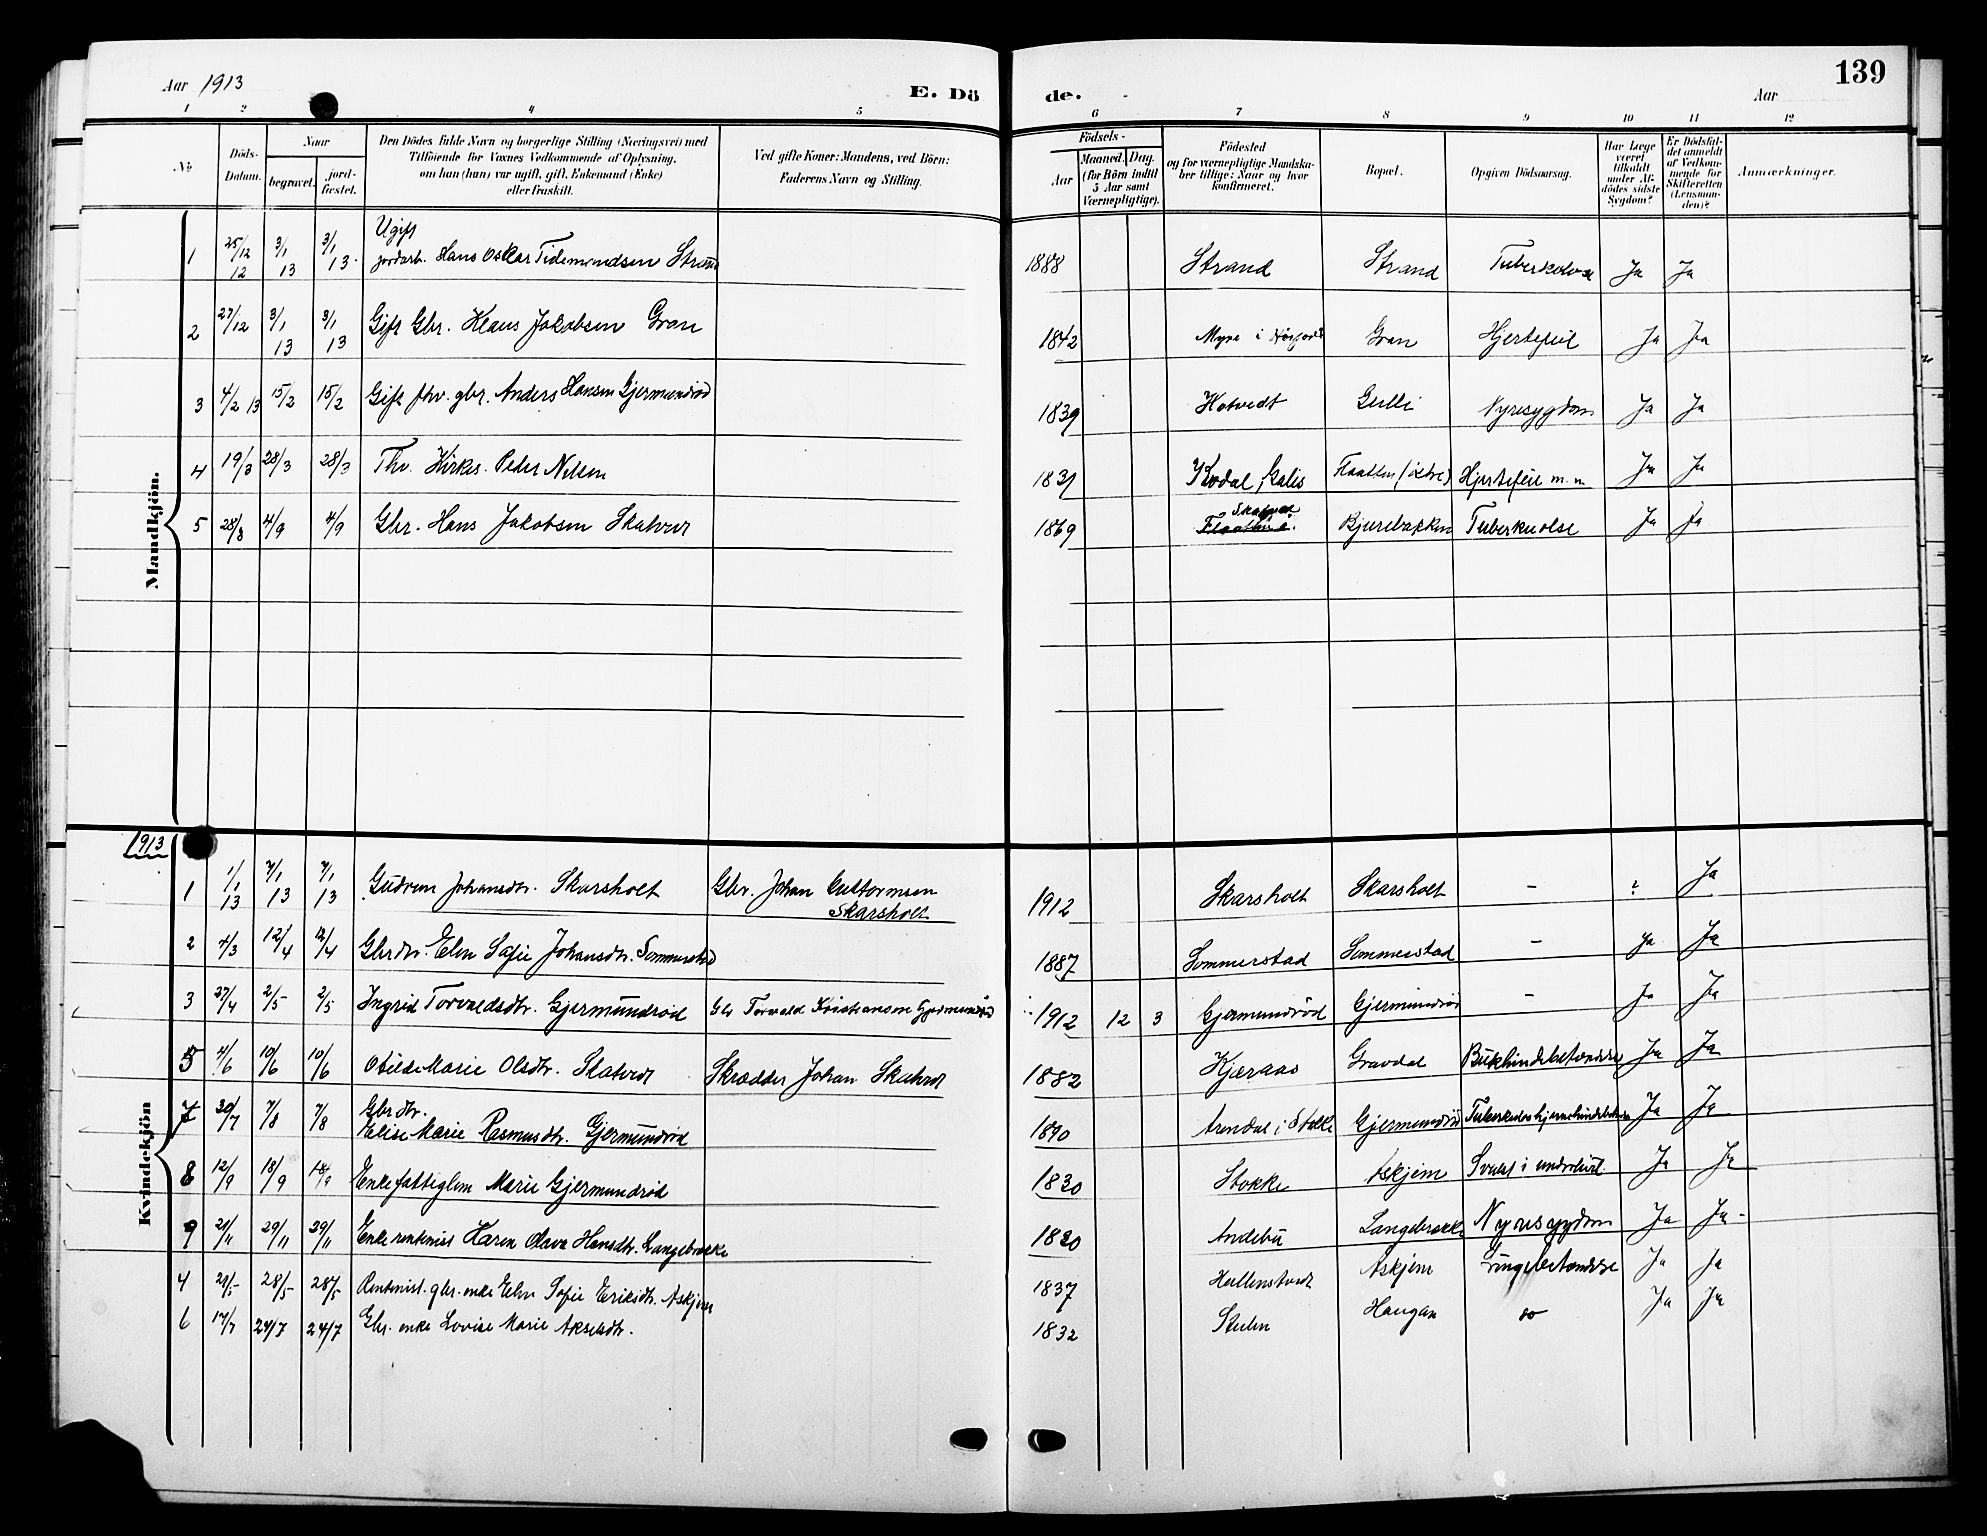 Aar 1913
E. Dö de.
Aar
139
1 2 3 4 5 6 7 8 9 10 11 12
No
Döds-Datum.
Naar
begravet.
jord-fæstet.
Den Dödes fulde Navn og borgerlige Stilling (Næringsvei) med
Tilföiende for Voxnes Vedkommende af Oplysning,
om han (hun) var ugift, gift, Enkemand (Enke)
eller fraskilt.
Ved gifte Koner: Mandens, ved Börn:
Faderens Navn og Stilling.
Födsels-
Aar
Maaned. Dag.
(for Börn indtil
5 Aar samt
Værnepligtige).
Födested
og for værnepligtige Mandska-
ber tillige: Naar og hvor
konfirmeret.
Bopæl.
Opgiven Dödsaarsag.
Har Læge
været
tilkaldt
under Af-
dödes sidste
Sygdom?
Er Dödsfal-
det anmeldt
af Vedkom-
mende for
Skifteretten
(Lensman-
den)?
Anmærkninger.
Mandkjön.
Ugift
1 25/12 12 3/1 13 3/1 13. jordarb. Hans Oskar Tidemandsen Strand 1888 Strand Strand Tuberkolose Ja Ja
2 27/12 3/1 13 3/1 13 Gift Gbr. Klaus Jakobsen Gran 1842 Myra i Gran Hjertefeil Ja Ja
3 4/2 13 15/2 15/2 Gift fhv. gbr. Anders Hansen Gjermundrød 1839 Hotvedt Gulli Nyresygdom Ja Ja
4 19/3 28/3 28/3 Fhv. Kirkes. Peder Nilsen 1831 Kodal, Flaatten (østre) Hjertefeil m.m Ja Ja
Skatvedt
5 28/8 4/9 4/9 Gbr. Hans Jakobsen Skatvedt 1869 Flaatten ø. Bjurebakken Tuberkuolse Ja Ja
1913
Kvindekjön
1 1/1 13 7/1 13 7/1 13 Gudrun Johansdtr. Skarsholt Gbr. Johan Guttormsen
Skarsholt 1912 Skarsholt Skarsholt - ? Ja
2 4/3 12/4 12/4 Gbrdtr. Elen Sofie Johansdtr. Sommerstad 1887 Sommerstad Sommerstad - Ja Ja
3 27/4 2/5 2/5 Ingrid Torvaldsdtr. Gjermundrød Gbr Torvald Kristiansen Gjermundrød 1912 12 3 Gjermundrød Gjermundrød - Ja Ja
5 4/6 10/6 10/6 Otilde Marie Olsdtr. Skatvedt Skrædder Johan Skatvedt 1882 Kjæraas Gravdal Bukhindebetændelse Ja Ja
Gbrdtr.
7 30/7 7/8 7/8 Elise Marie Rasmusdtr. Gjermundrød 1890 Arendal i Stokke Gjermundrød Tuberkuløs hjernehindebetæn Ja Ja
8 12/9 18/9 18/9 Enke fattiglem Marie Gjermundrød 1830 Stokke Askjem Svulst i underlivet Ja Ja
9 21/11 29/11 29/11 Enke rentenist Karen Olava Hansdtr. Langebrække 1820 Andebu Langebrække Nyresygdom Ja Ja -
4 29/5 28/5 28/5 Rentenist. gbr. enke Elen Sofie Eriksdtr. Askjem 1837 Hallenstvedt Askjem Lungebetændelse Ja Ja
6 17/7 24/7 24/7 Gbr. enke Lovise Marie Akselsdtr. 1832 Stulen Haugan do Ja Ja